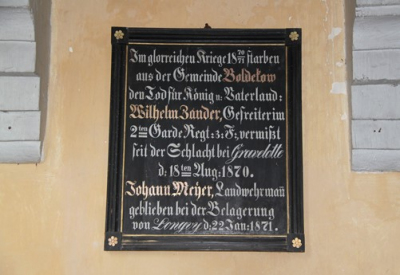 Im glorreichen Kriege 18 70/71 starben
aus der Gemeinde Boldekow
den Tod für König u: Vaterland:
Wilhelm Zander, Gefreiter im
2ten Garde Regt: z: F:, vermißt
seit der Schlacht bei Gravelotte
d: 18ten Aug: 1870.
Johann Meyer, Landwehrmañ
geblieben bei der Belagerung
von Longwy d: 22 Jan: 1871.